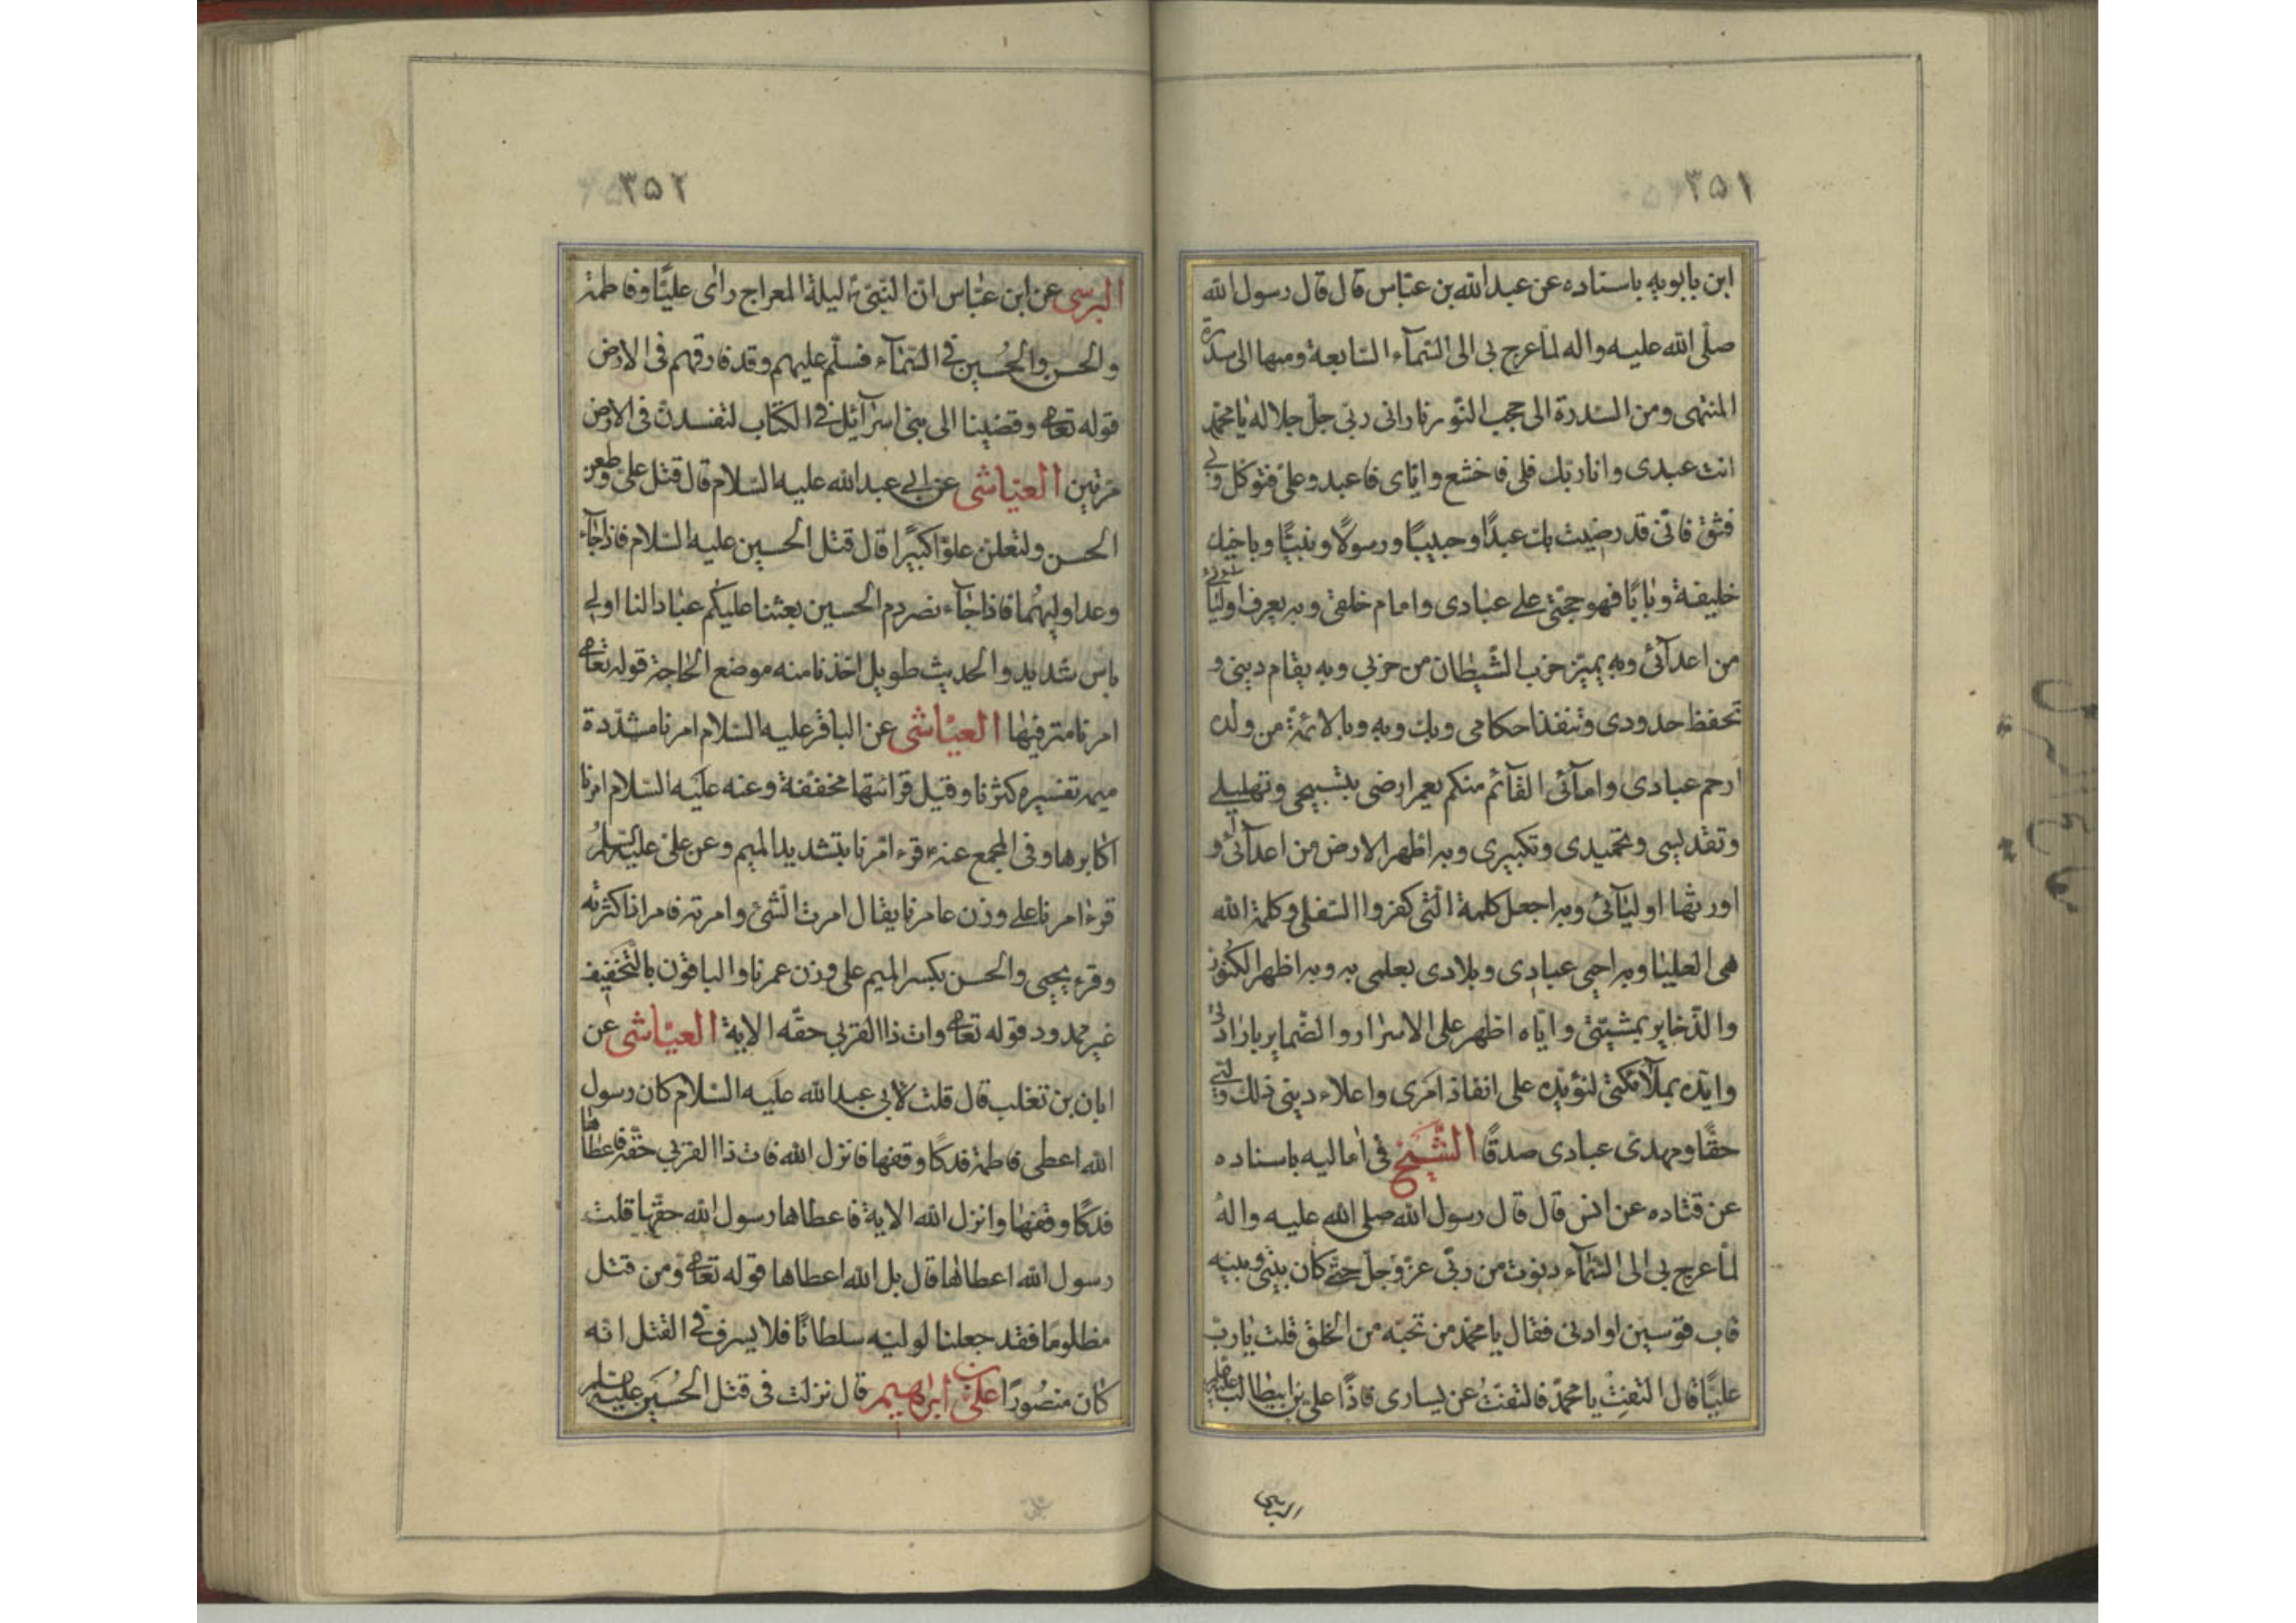 ٣٥١
ابن بابويه باسناده عن عبدالله بن عباس قال قال رسول الله
صلى الله عليه واله لما عرج بى الى السمآء السابعة ومنها الى سدرة
المنتهى ومن السدرة الى حجب النور نادانى ربى جل جلاله يا محمد
انت عبدى وانا ربك فلى فاخشع واياى فاعبد وعلى فتوكل وبى
فثق فانى قد رضيت بك عبدًا وحبيبًا ورسولًا ونبيًا وباخيك
خليفة وبابًا فهو حجتى على عبادى وامام خلقى وبه يعرف اوليائى
من اعدآئى وبه يميز حزب الشيطان من حزبى وبه يقام دينى و
تحفظ حدودى وتنفذ احكامى وبك وبه وبالائمة من ولده
ارحم عبادى وامآئى القآئم منكم يعمر ارضى بتسبيحى وتهليلى
وتقديسى وتحميدى وتكبيرى وبه اظهر الارض من اعدآئى و
اورثها اوليآئى وبه اجعل كلمة الذين كفروا السفلى وكلمة الله
هى العليا وبه احيى عبادى وبلادى بعلمى به وبه اظهر الكنوز
والذخاير بمشيتى واياه اظهر على الاسرار والضماير بارادتى
وايده بملآئكتى لتؤيده على انفاذ امرى واعلاء دينى ذلك وليى
حقًا ومهدى عبادى صدقًا الشيخ فى اماليه باسناده
عن قتاده عن انس قال قال رسول الله صلى الله عليه واله
لما عرج بى الى السمآء دنوت من ربى عز وجل حتى كان بينى وبينه
قاب قوسين او ادنى فقال يا محمد من تحبه من الخلق قلت يا رب
عليًا قال التفت يا محمد فالتفت عن يسارى فاذا على بن ابيطالب عليه
البرسى
٣٥٢
البرسى عن ابن عباس ان النبى ليلة المعراج راى عليًا وفاطمة
والحسن والحسين فى السمآء فسلم عليهم وقد فارقهم فى الارض
قوله تعا وقضينا الى بنى اسرآئيل فى الكتاب لتفسدن فى الارض
مرتين العياشى عن ابى عبدالله عليه السلام قال قتل على وطعن
الحسن ولتعلن علوًا كبيرًا قال قتل الحسين عليه السلام فاذا جآء
وعد اوليهما فاذا جآء نصر دم الحسين بعثنا عليكم عبادا لنا اولى
باس شديد والحديث طويل اخذنا منه موضع الحاجة قوله تعا
امرنا مترفيها العياشى عن الباقر عليه السلام امرنا مشددة
ميمه تفسيره كثرنا وقيل قرائتها مخففة وعنه عليه السلام امرنا
اكابرها وفى المجمع عنه قرء امرنا بتشديد الميم وعن على عليه السلام
قرء امرنا على وزن عامرنا يقال امرت الشئ وامرته فامر اذا كثرته
وقرء يحيى والحسن بكسر الميم على وزن عمرنا والباقون بالتخفيف
غير ممدود قوله تعا وات ذا القربى حقه الاية العياشى عن
ابان بن تغلب قال قلت لابى عبدالله عليه السلام كان رسول
الله اعطى فاطمة فدكًا وقفها فانزل الله فات ذا القربى حقه فاعطاها
فدكًا وقفها وانزل الله الاية فاعطاها رسول الله حقها قلت
رسول الله اعطاها قال بل الله اعطاها قوله تعا ومن قتل
مظلومًا فقد جعلنا لوليه سلطانًا فلا يسرف فى القتل انه
كان منصورًا على بن ابراهيم قال نزلت فى قتل الحسين عليه السلام